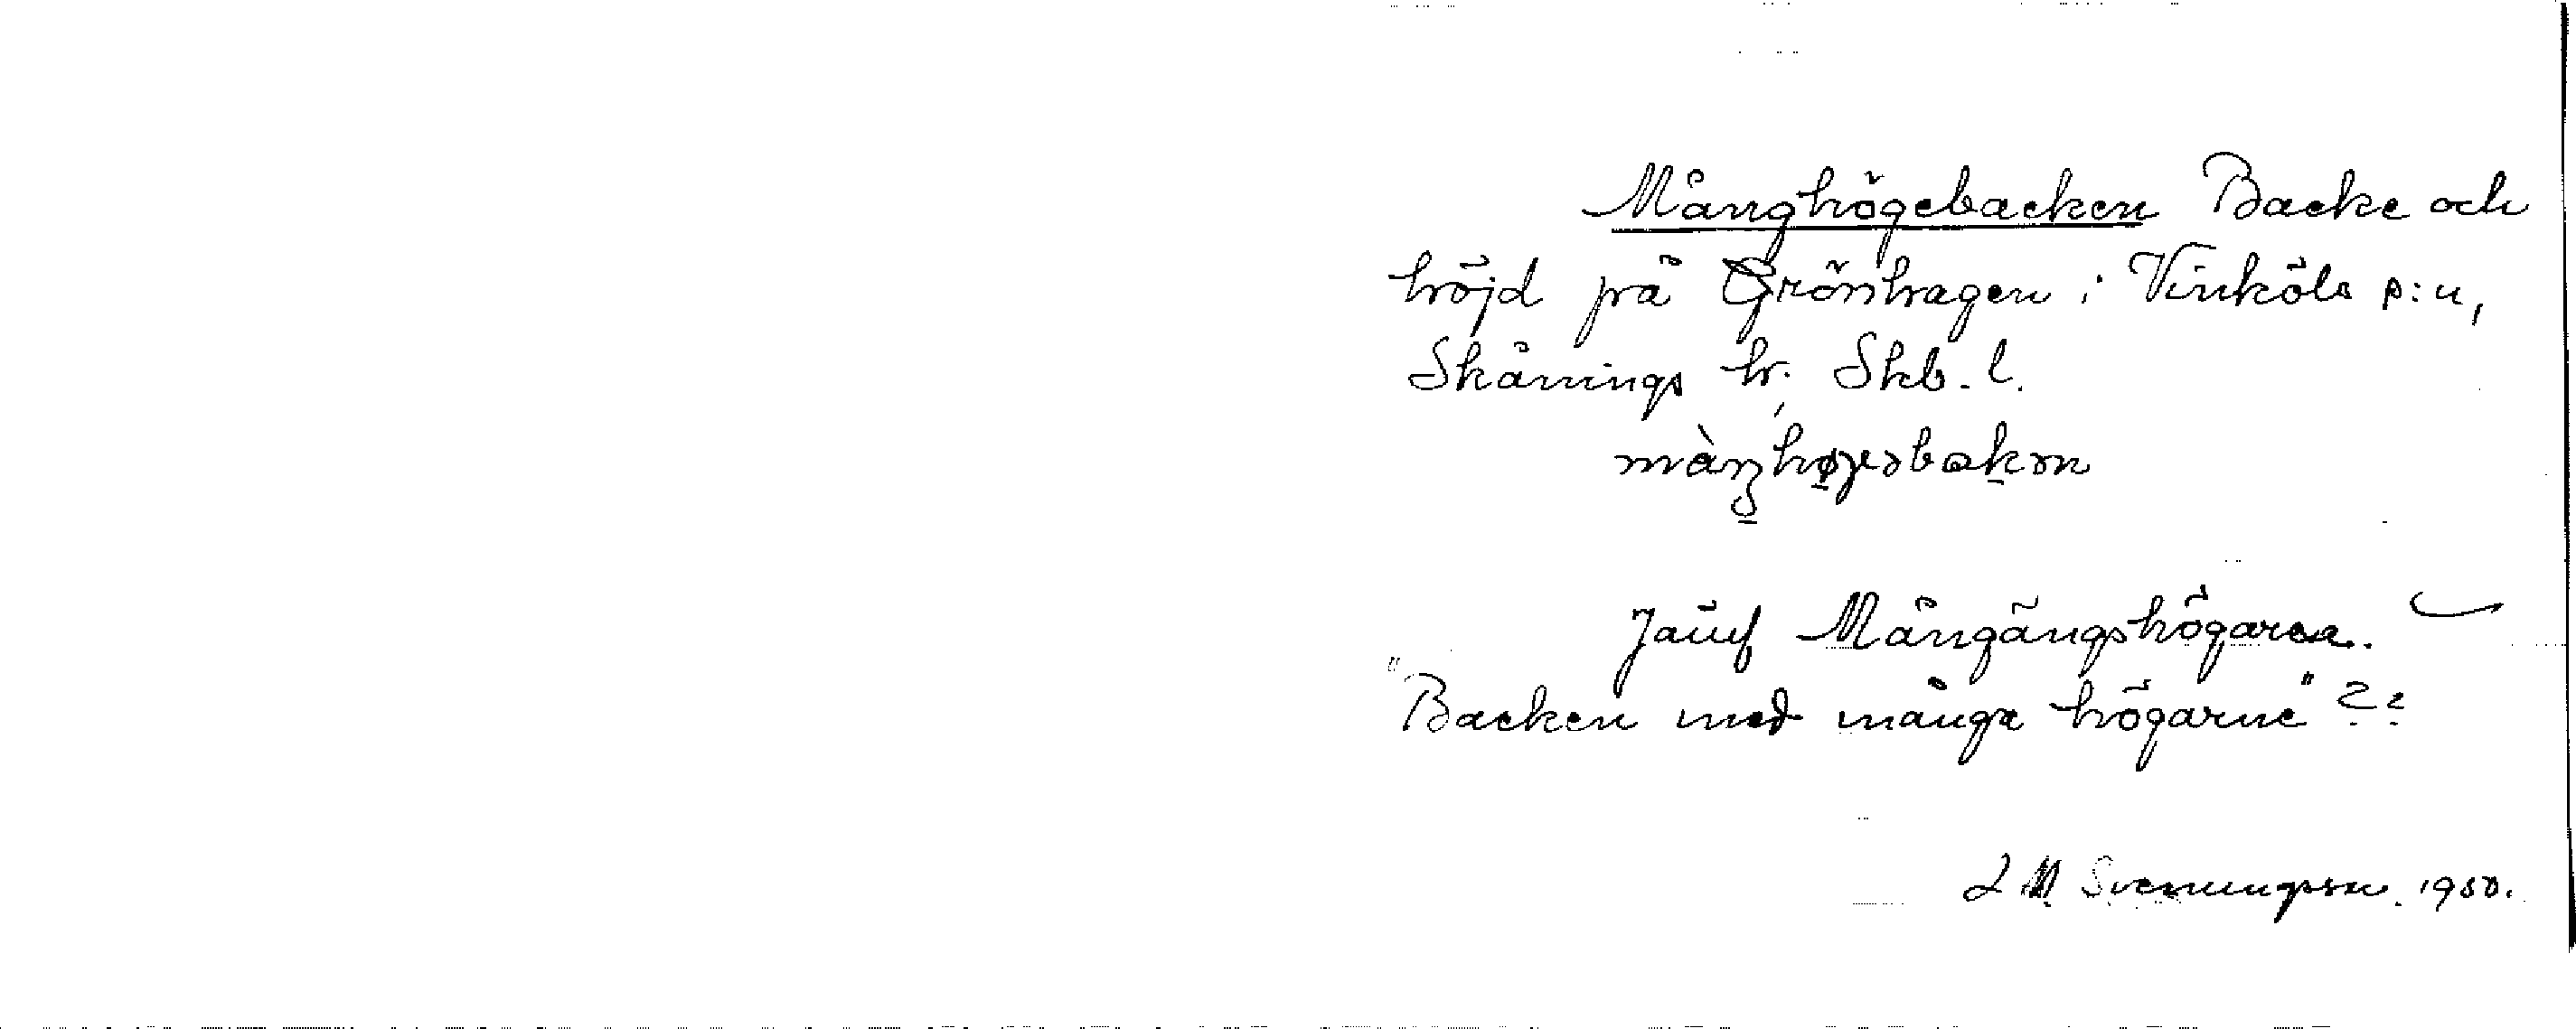 Månghögebacken Backe och
höjd på Grönhagen i Vinköls s:n,
Skånings hr. Skb. l.
Jämf Mångångshögarna.
"Backen med många högarne" ??
L M Svenungsson 1950.